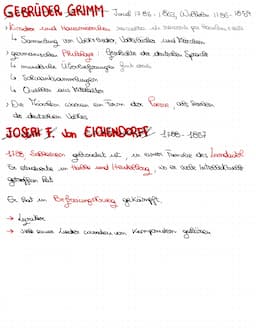 GEBRÜDER GRIMM - Jacob 1785 - 1863, Wilhelm 1786 - 1859
Kinder und Hausmärchen
↳ Sammlung von Volkslieder, Volksbücher und Märchen
germanische Philologie: Geschichte der deutschen Sprache
↳ mündliche Überlieferungen
↳ Sagensammlungen
↳ Quellen aus Mittelalter
Die Märchen waren ein Form der Poesie, aus Seelen
des deutschen Volkes
JOSEPH F. von EICHENDORFF 1788 - 1857
1788 geboren ist, in einer Familie des Landadel
Er studierte in Halle und Heidelberg, wo er viele Intellektuelle
getroffen hat
Er hat in Befreiungskrieg gekämpft.
→ Lyriker
→ viele seiner Lieder wurden von Komponisten